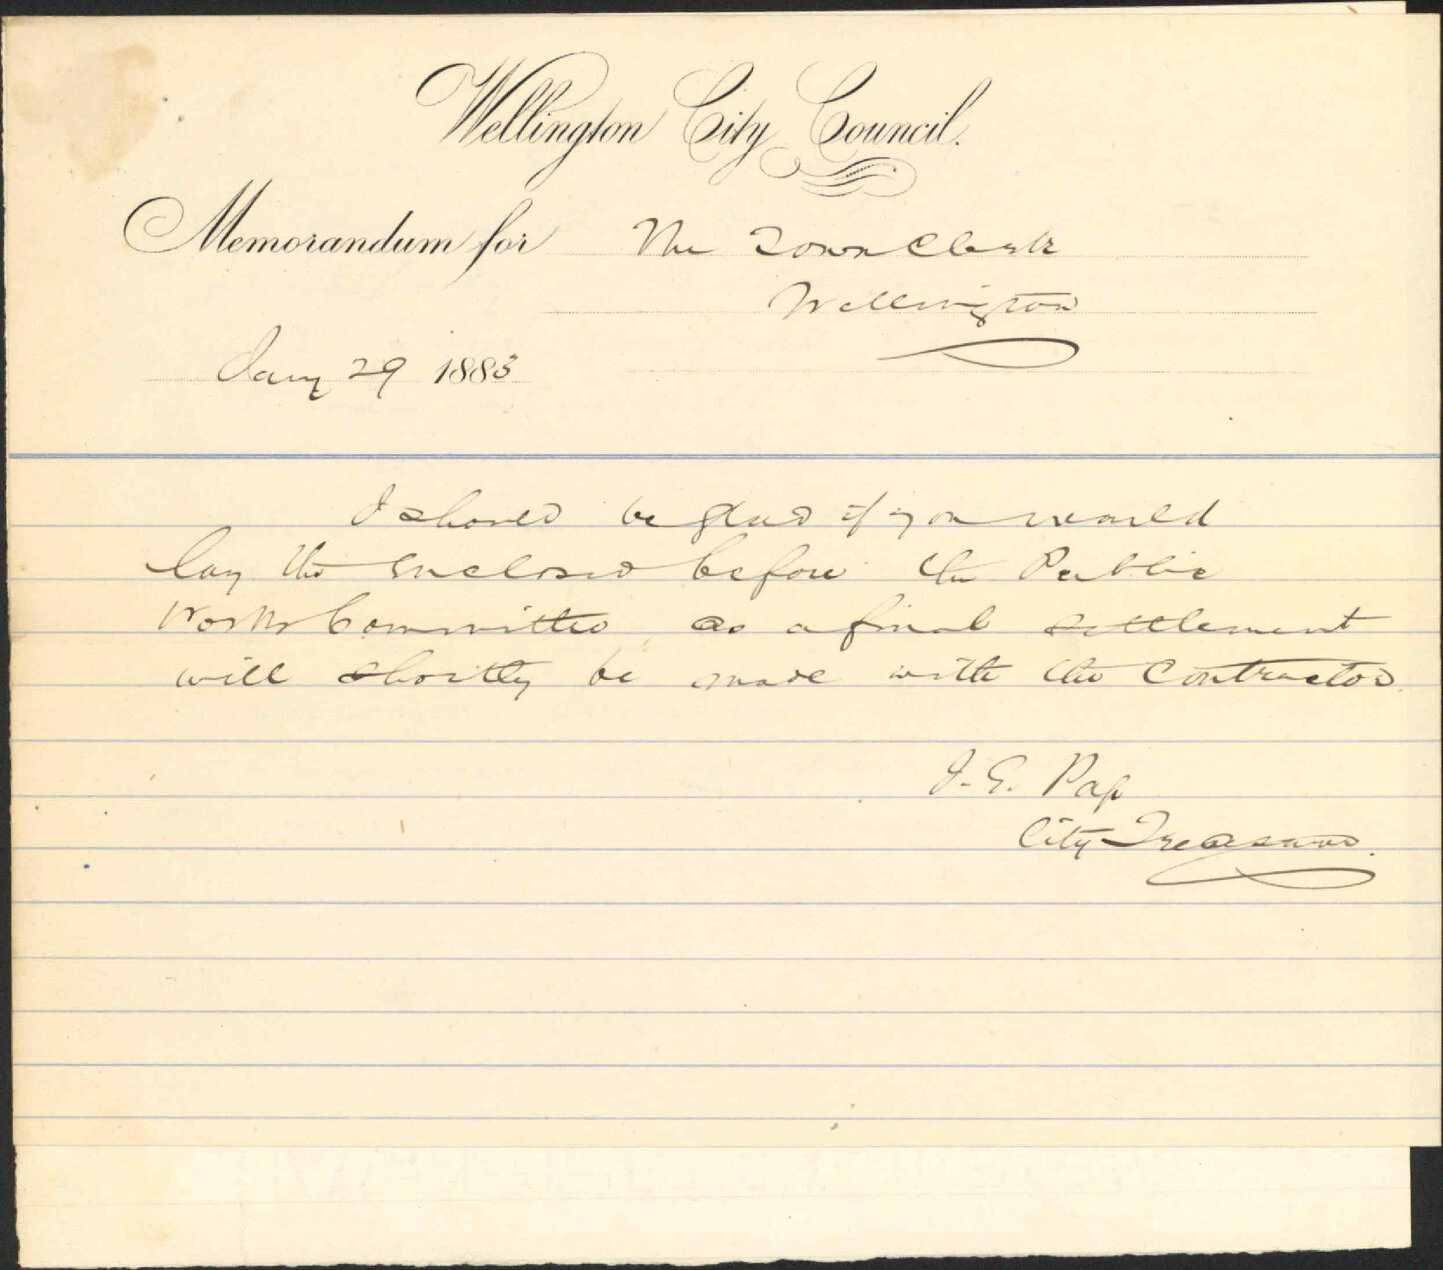 Wellington City Council.
Memorandum for The Town Clerk
Wellington
Jany 29 1883
I should be glad if you would
lay the enclosed before the Public
Works Committee, as a final settlement
will shortly be made with the Contractor.
J. E. Page
City Treasurer.